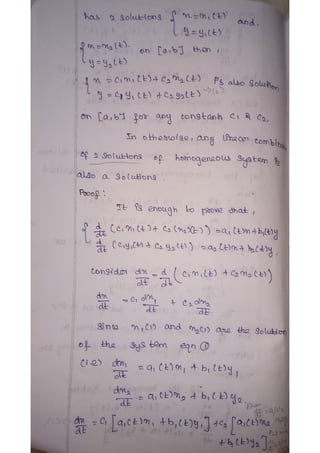 has 2 solutions { x = x₁(t) and.
y = y₁(t)
{ x = x₂(t). on [a,b] then,
y = y₂(t)
{ x = c₁x₁(t) + c₂x₂(t) is also solution
y = c₁y₁(t) + c₂y₂(t)
on [a,b] for any constants c₁ & c₂.
In otherwise, any linear combin
of 2 solutions of homogeneous system is
also a solutions.
Proof:
It is enough to prove that,
{ d/dt (c₁x₁(t) + c₂(x₂(t)) = a₁(t)x + b₁(t)y
d/dt (c₁y₁(t) + c₂y₂(t)) = a₂(t)x + b₂(t)y.
consider dx/dt = d/dt (c₁x₁(t) + c₂x₂(t))
dx/dt = c₁ dx₁/dt + c₂ dx₂/dt
Since x₁(t) and x₂(t) are the solution
of the system eqn ①
(i.e) dx₁/dt = a₁(t)x₁ + b₁(t)y₁
dx₂/dt = a₁(t)x₂ + b₁(t)y₂
dx/dt = c₁[a₁(t)x₁ + b₁(t)y₁] + c₂[a₁(t)x₂
+ b₁(t)y₂]